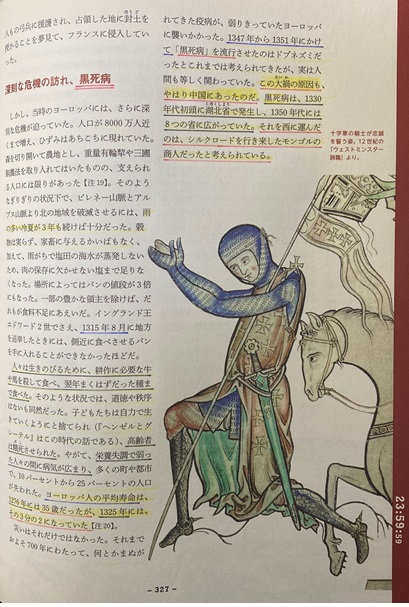 人もの弓兵に援護され、占領した地に封土を
授かることを夢見て、フランスに侵入してい
った。
深刻な危機の訪れ、黒死病
しかし、当時のヨーロッパには、さらに深
刻な危機が迫っていた。人口が8000万人近
くまで増え、ひずみはあちこちに現れていた。
森を切り開いて農地とし、重量有輪犂や三圃
制農法を取り入れてはいたものの、支えられ
る人口には限りがあった【注19】。そのよう
なぎりぎりの状況下で、ピレネー山脈とアル
プス山脈より北の地域を破滅させるには、雨
の多い冷夏が3年も続けば十分だった。穀
物は実らず、家畜に与えるかいばもなく、
加えて、雨がちで塩田の海水が蒸発しない
ため、肉の保存に欠かせない塩まで足りな
くなった。場所によってはパンの値段が3倍
にもなった。一部の豊かな領主を除けば、だ
れもが食料不足にあえいだ。イングランド王
エドワード2世でさえ、1315年8月に地方
を巡幸したときには、側近に食べさせるパン
を手に入れることができなかったほどだ。
人々は生きのびるために、耕作に必要な牛
や馬を殺して食べ、翌年まくはずだった種ま
で食べた。そのような状況では、道徳や秩序
はないも同然だった。子どもたちは自力で生
きていくようにと捨てられ（『ヘンゼルとグ
レーテル』はこの時代の話である）、高齢者
は餓死させられた。やがて、栄養失調で弱っ
た人々の間に病気が広まり、多くの町や都市
で、10パーセントから25パーセントの人口
が失われた。ヨーロッパ人の平均寿命は、
1276年には35歳だったが、1325年には、
その3分の2になっていた【注20】。
災いはそれだけではなかった。それまで
おおよそ700年にわたって、何とかまぬが
れてきた疫病が、弱りきっていたヨーロッパ
に襲いかかった。1347年から1351年にかけ
て「黒死病」を流行させたのはドブネズミだ
ったとこれまでは考えられてきたが、実は人
間も等しく関わっていた。この大禍の原因も、
やはり中国にあったのだ。黒死病は、1330
年代初頭に湖北省で発生し、1350年代には
8つの省に広がっていた。それを西に運んだ
のは、シルクロードを行き来したモンゴルの
商人だったと考えられている。
十字軍の騎士が忠誠
を誓う姿。12世紀の
『ウェストミンスター
詩篇』より。
23:59:59
- 327 -